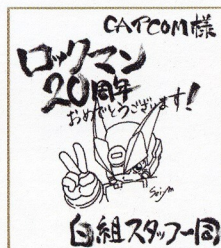 CAPCOM様
ロックマン
20周年
おめでとうございます!
白組スタッフ一同